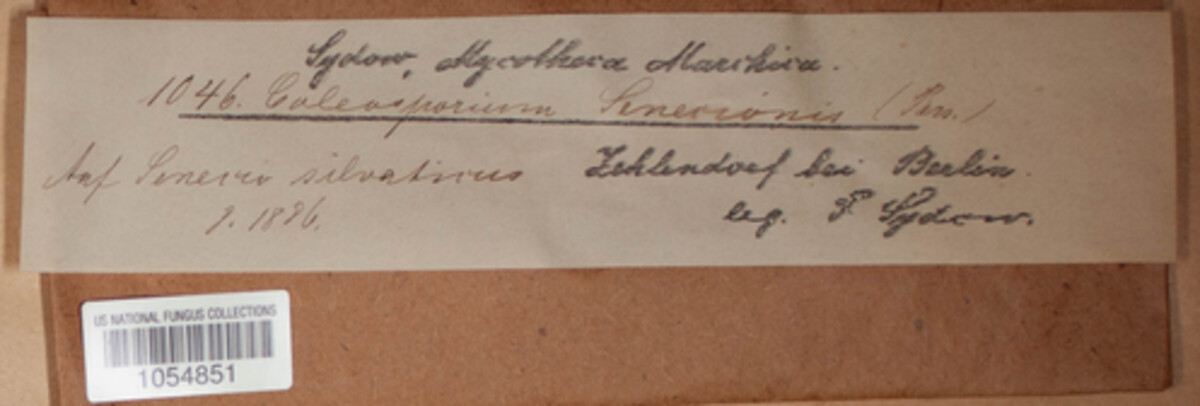 Sydow, Mycotheca Marchica.
1046. Coleosporium Senecionis (Pers.)
Auf Senecio silvaticus Zehlendorf bei Berlin.
9. 1886. leg. P Sydow.
US NATIONAL FUNGUS COLLECTIONS
1054851